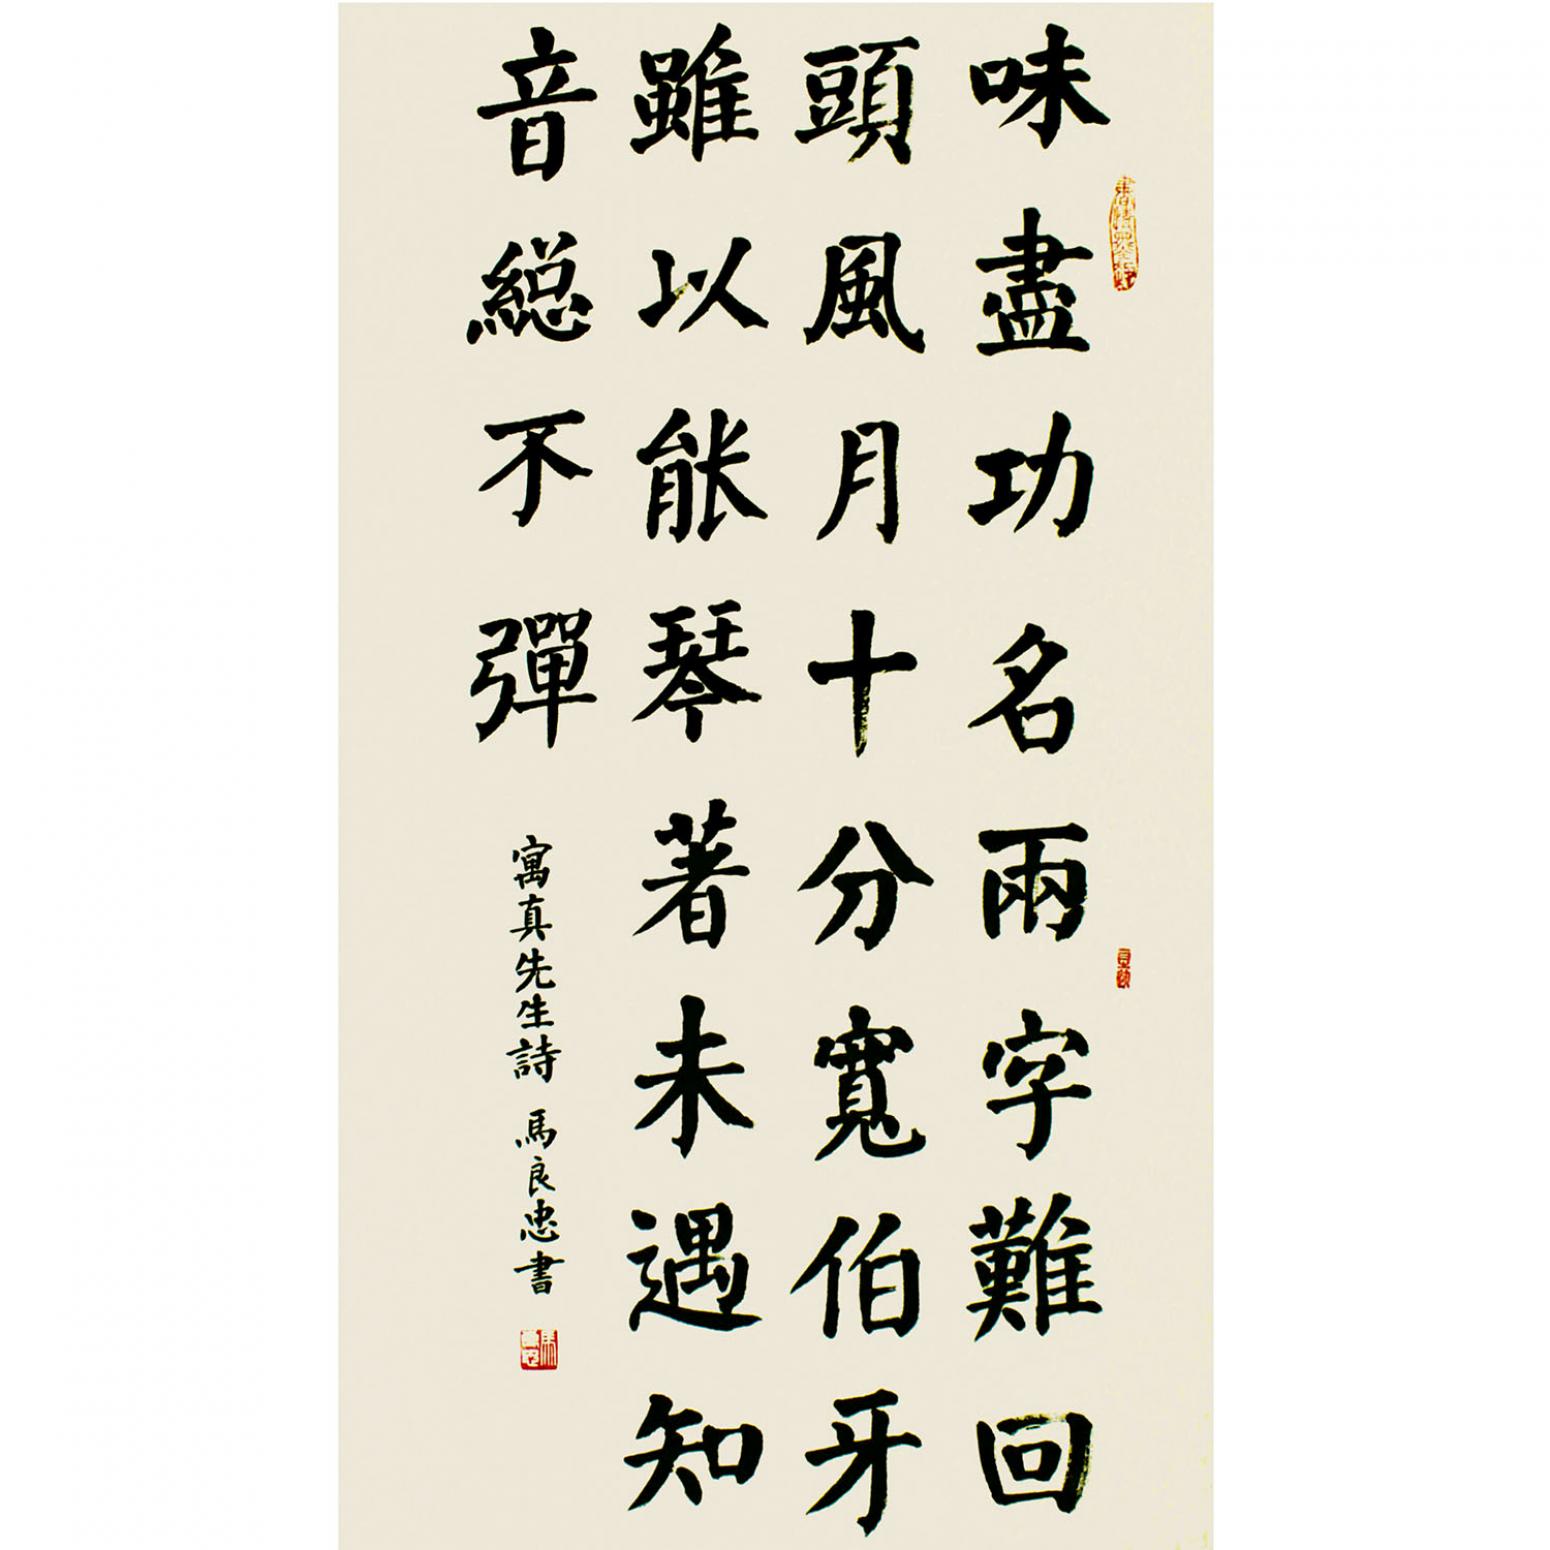 味盡功名兩字難回
頭風月十分寬伯牙
雖以能琴著未遇知
音総不彈
寓真先生詩 馬良忠書